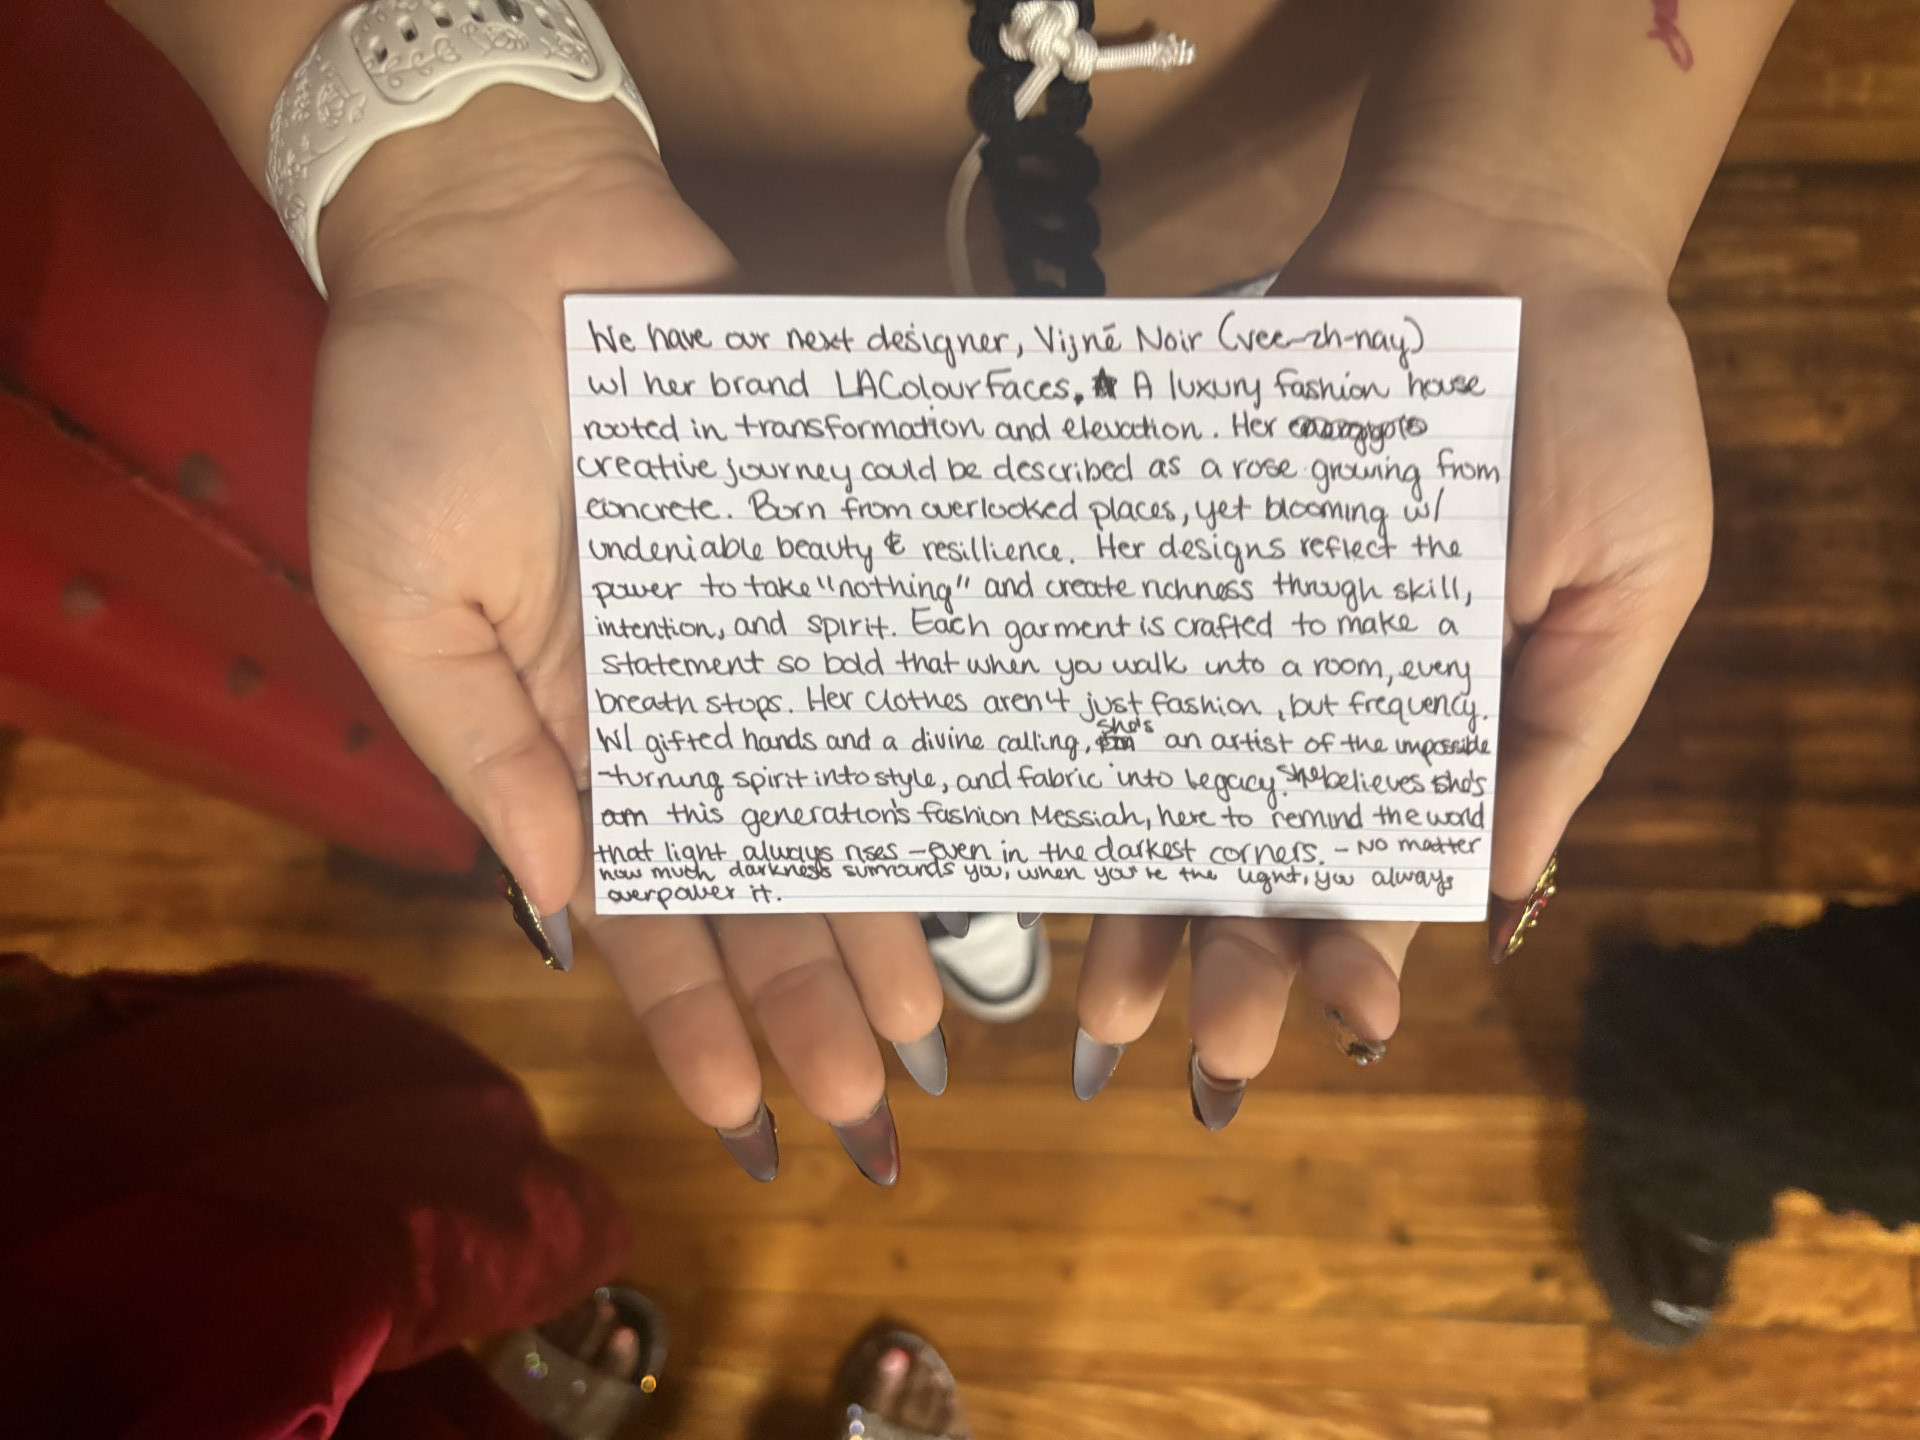 We have our next designer, Vijné Noir (vee-zh-nay)
w/ her brand LAColourFaces. ★ A luxury fashion house
rooted in transformation and elevation. Her
creative journey could be described as a rose growing from
concrete. Born from overlooked places, yet blooming w/
undeniable beauty & resillience. Her designs reflect the
power to take "nothing" and create richness through skill,
intention, and spirit. Each garment is crafted to make a
statement so bold that when you walk into a room, every
breath stops. Her clothes aren't just fashion, but frequency.
W/ gifted hands and a divine calling, she's an artist of the impossible
-turning spirit into style, and fabric into legacy. She believes she's
am this generation's fashion Messiah, here to remind the world
that light always rises - even in the darkest corners. - No matter
how much darkness surrounds you, when you're the light, you always
overpower it.